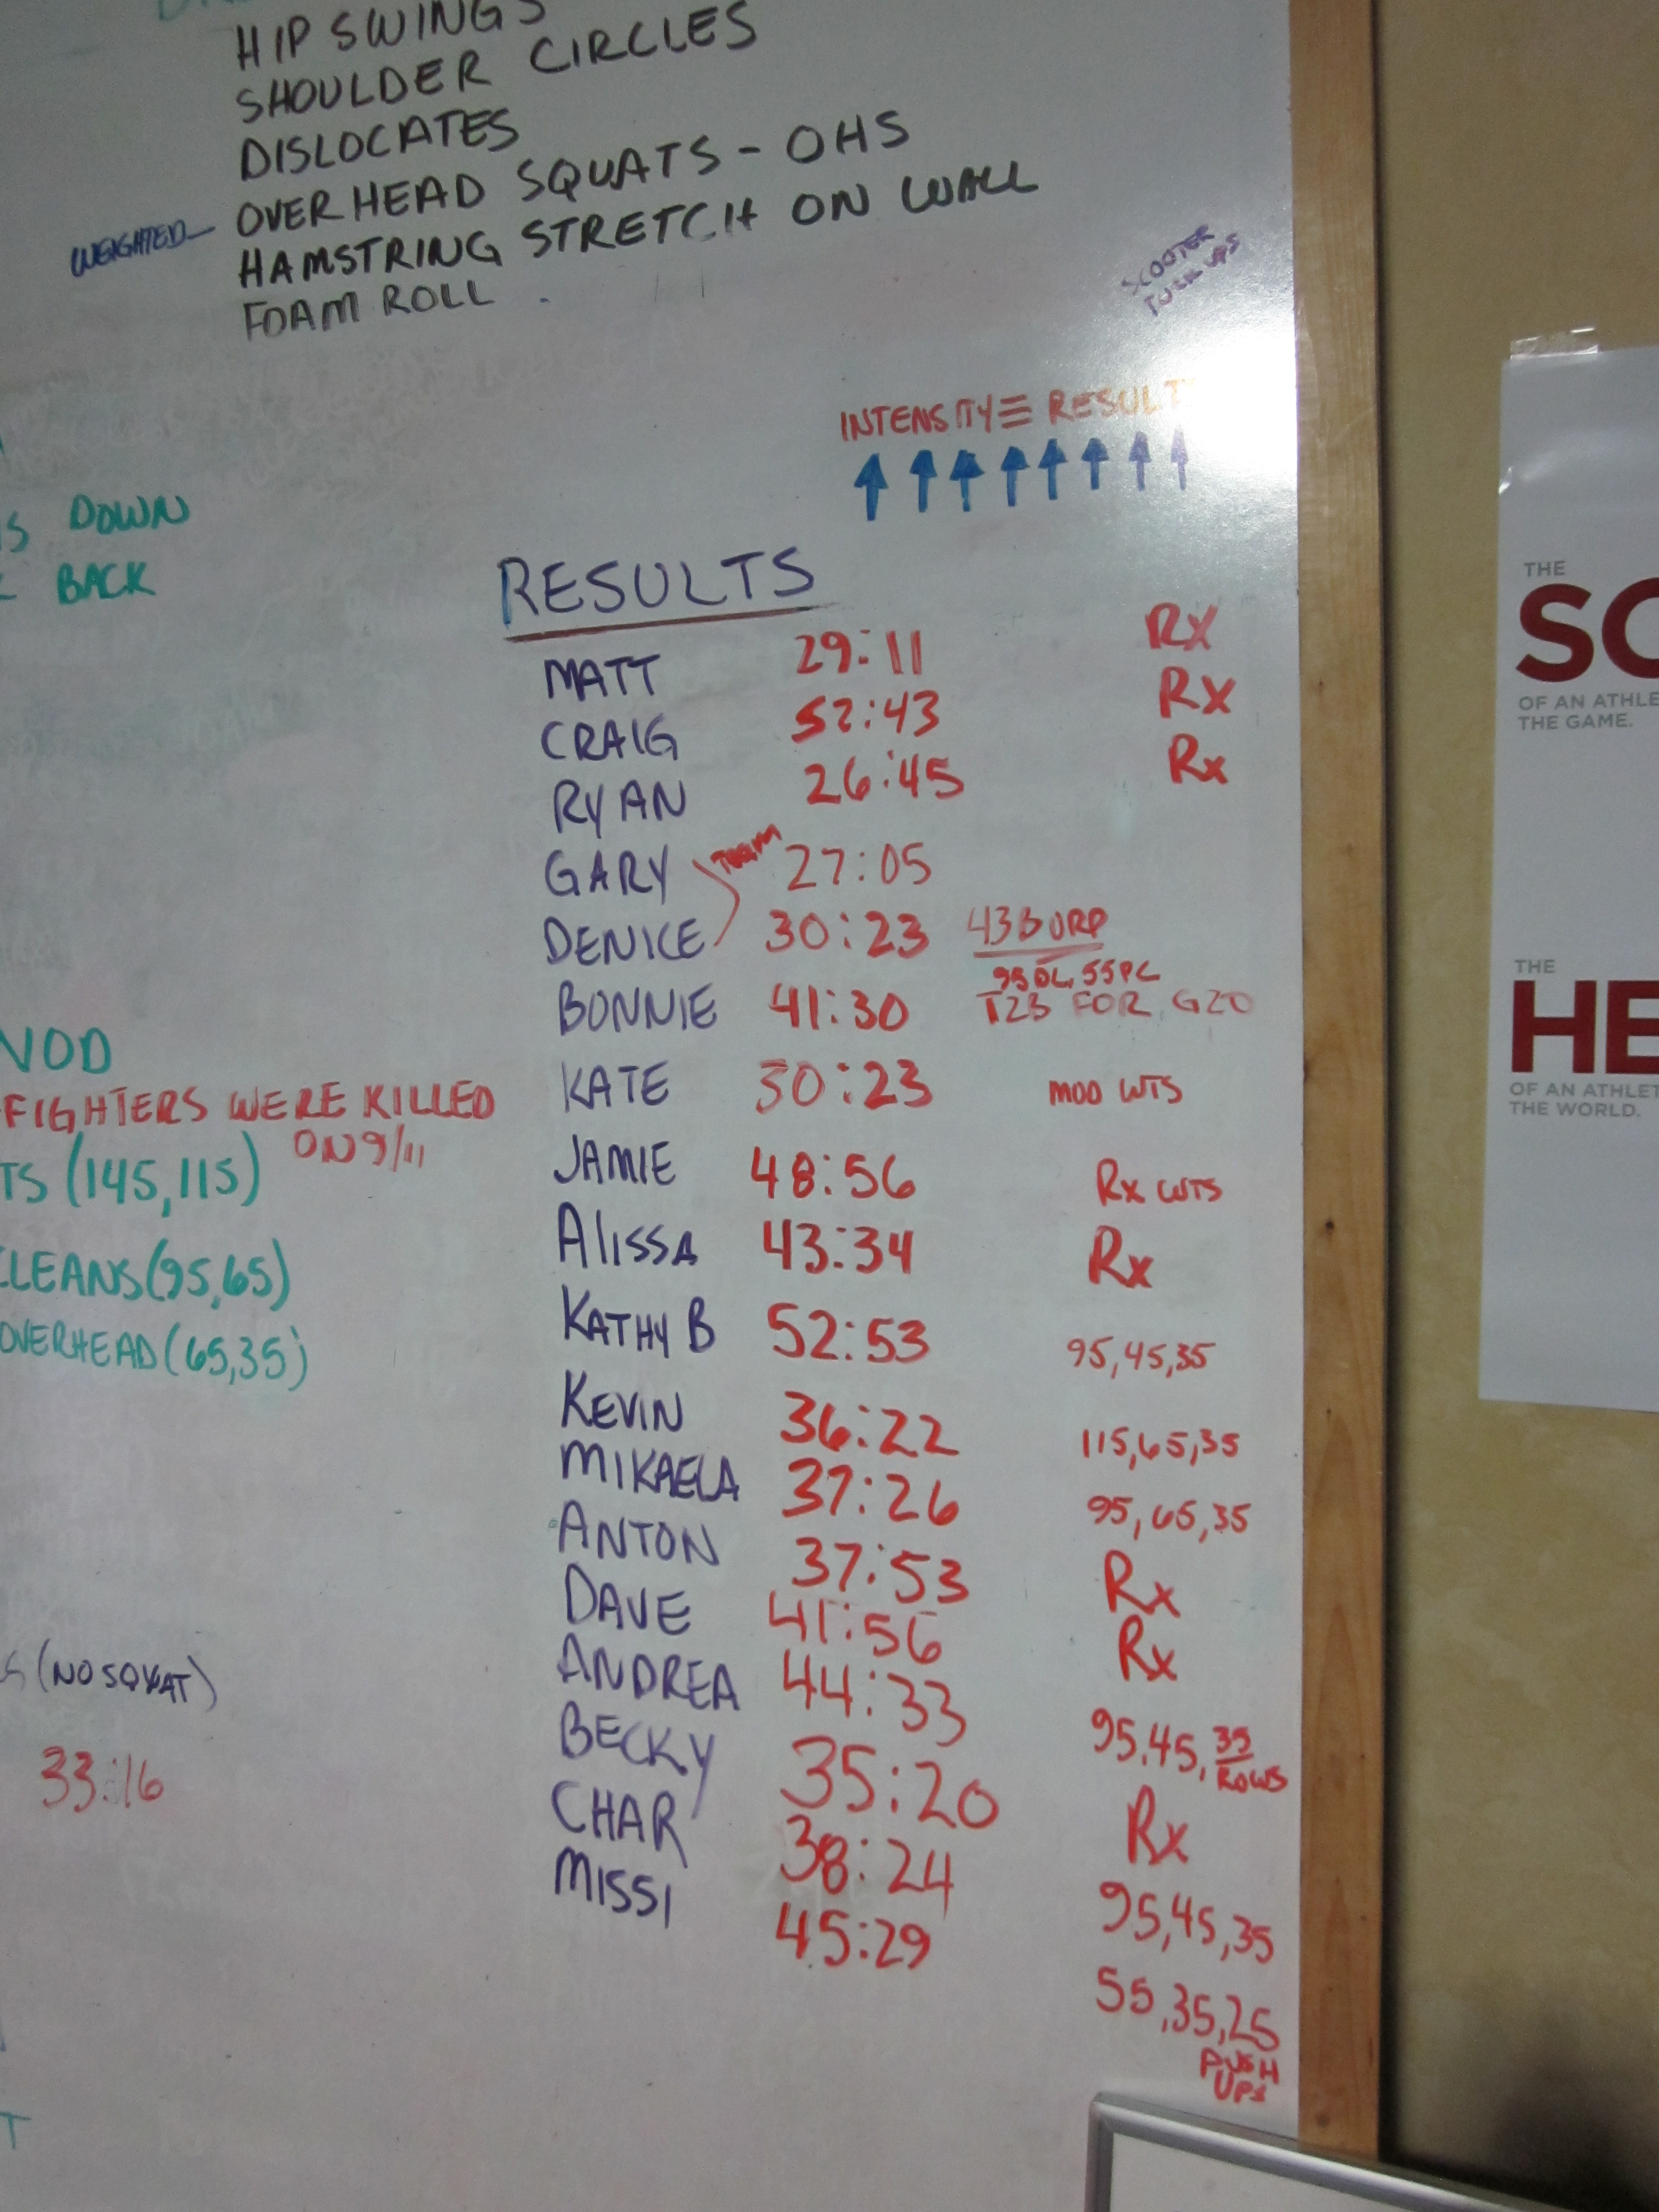 HIP SWINGS
SHOULDER CIRCLES
DISLOCATES
WEIGHTED- OVERHEAD SQUATS - OHS
HAMSTRING STRETCH ON WALL
FOAM ROLL
SCOOTER
TUCK UPS
INTENSITY ≡ RESULT
↑ ↑ ↑ ↑ ↑ ↑ ↑ ↑
DOWN
BACK
RESULTS
MATT 29:11 RX
CRAIG 52:43 Rx
RYAN 26:45 Rx
GARY TEAM 27:05
DENICE 30:23 43 BURP
95DL, 55PC
BONNIE 41:30 T23 FOR G20
KATE 30:23 MOD WTS
JAMIE 48:56 Rx WTS
ALISSA 43:34 Rx
KATHY B 52:53 95,45,35
KEVIN 36:22 115,65,35
MIKAELA 37:26 95,65,35
ANTON 37:53 Rx
DAVE 41:56 Rx
ANDREA 44:33 95,45,35
ROWS
BECKY 35:20 Rx
CHAR 38:24 95,45,35
MISSI 45:29 55,35,25
PUSH
UPS
WOD
FIGHTERS WERE KILLED
ON 9/11
TS (145,115)
CLEANS (95,65)
OVERHEAD (65,35)
S (NO SQUAT)
33:16
T
THE
SC
OF AN ATHLE
THE GAME.
THE
HE
OF AN ATHLET
THE WORLD.